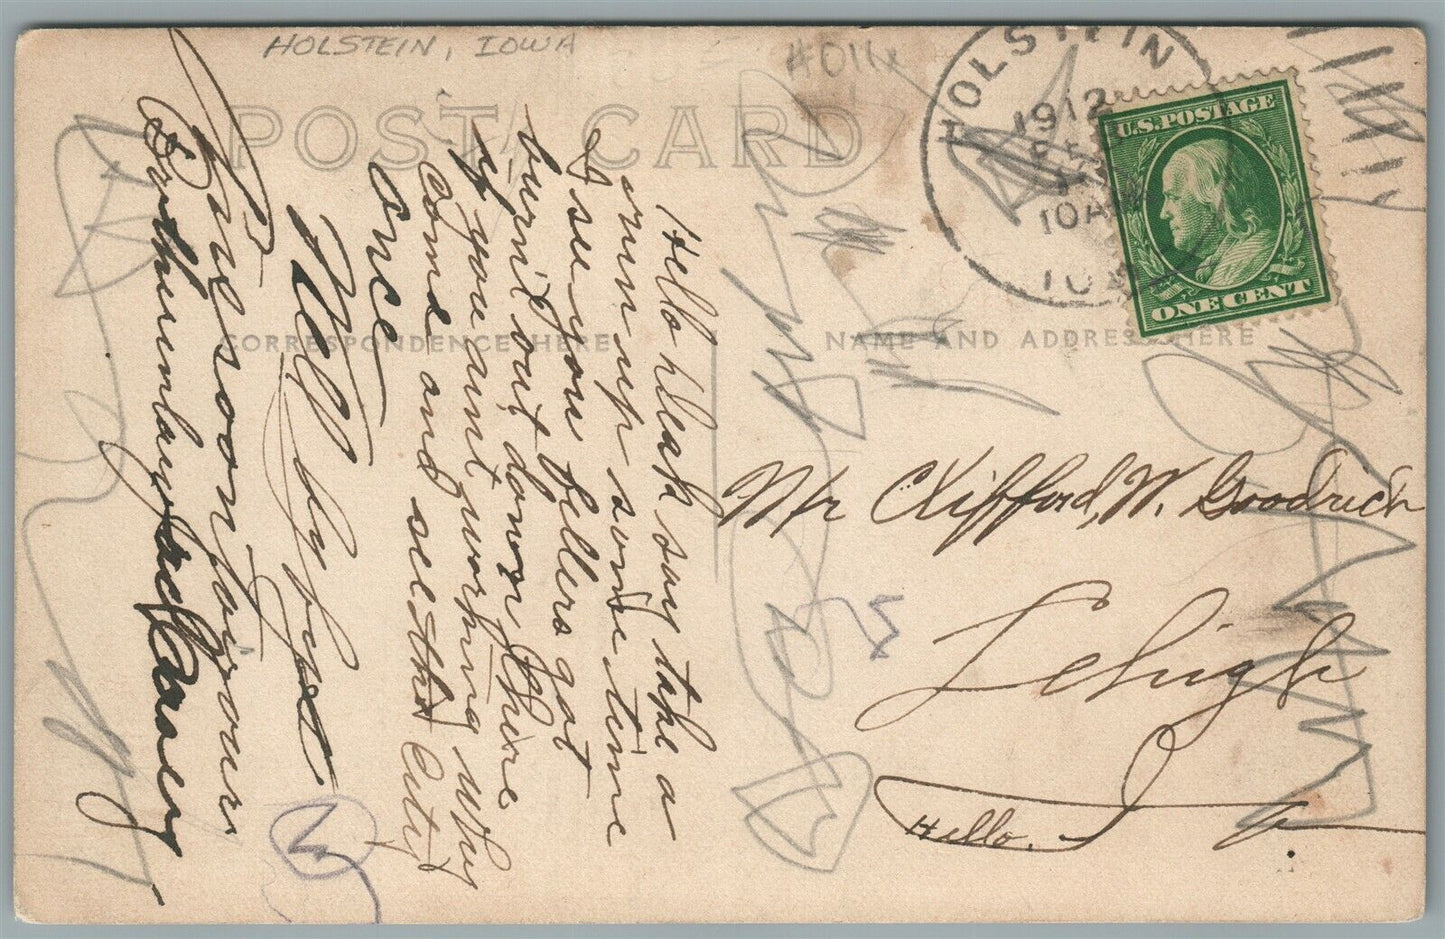 HOLSTEIN, IOWA
POST CARD
HOLSTEIN
1912
10 AM
IOWA
U.S. POSTAGE
ONE CENT
CORRESPONDENCE HERE
NAME AND ADDRESS HERE
Hello say take a
run up some time
I see you fellers got
burn'd out down there
if you aint working why
come and see the City
once
Well by for
soon your
Mr Clifford, W. Goodrich
Lehigh
Ia.
Hello.